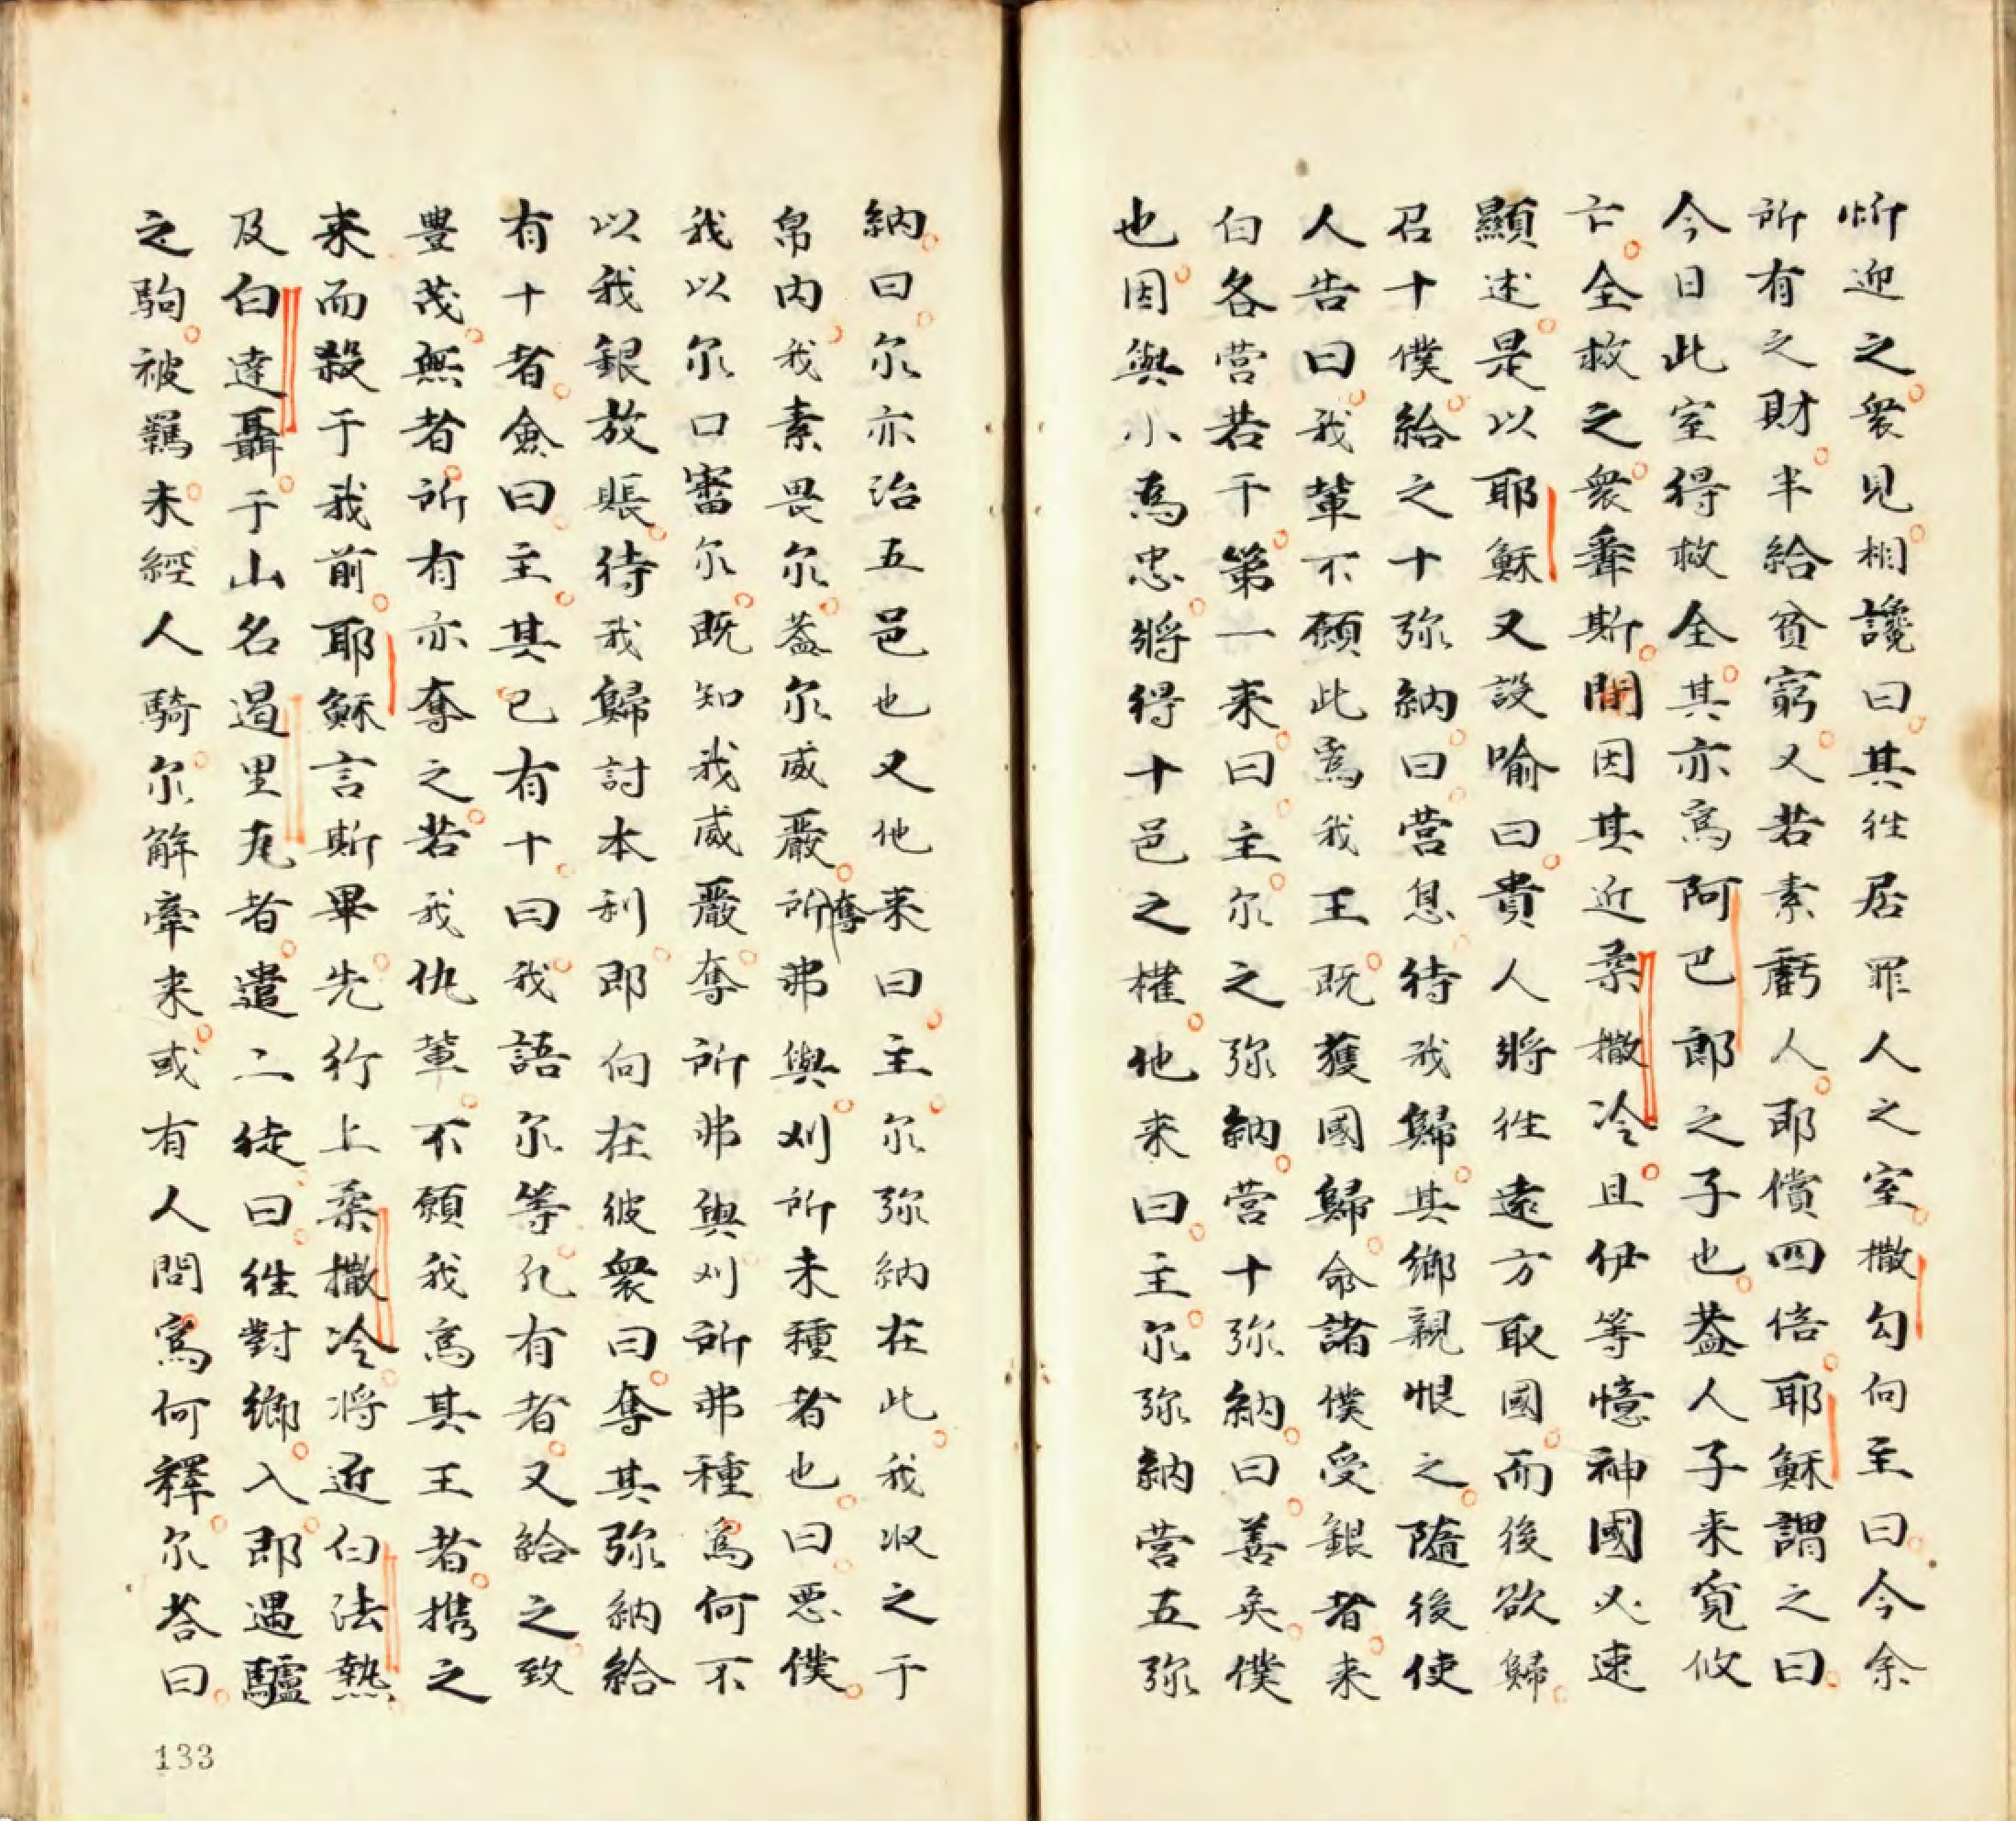 忻迎之衆見相讒曰其徃居罪人之室撒勾向主曰今余
所有之財半給貧窮又若素虧人即償四倍耶穌謂之曰
今日此室得救全其亦為阿巴郎之子也盖人子来覓攸
亡全救之衆聽斯間因其近柔撒冷且伊等憶神國必速
顯述是以耶穌又設喻曰貴人將徃遠方取國而後欲歸
召十僕給之十弥納曰营息待我歸其鄉親恨之隨後使
人告曰我輩不願此為我王既獲國歸命諸僕受銀者来
白各营若干第一来曰主尔之弥納营十弥納曰善矣僕
也因與小為忠將得十邑之權他来曰主尔弥納营五弥
納曰尔亦治五邑也又他来曰主尔弥納在此我收之于
帛内我素畏尔盖尔威嚴奪所弗與刈所未種者也曰惡僕
我以尔口審尔既知我威嚴奪所弗與刈所弗種為何不
以我銀放賬待我歸討本利即向在彼衆曰奪其弥納給
有十者僉曰主其已有十曰我語尔等凡有者又給之致
豊茂無者所有亦奪之若我仇輩不願我為其王者携之
来而殺于我前耶穌言斯畢先行上柔撒冷将近白法熱
及白達聶于山名過里瓦者遣二徒曰徃對鄉入即遇驢
之駒被羈未經人騎尔解牽来或有人問為何釋尔荅曰
133